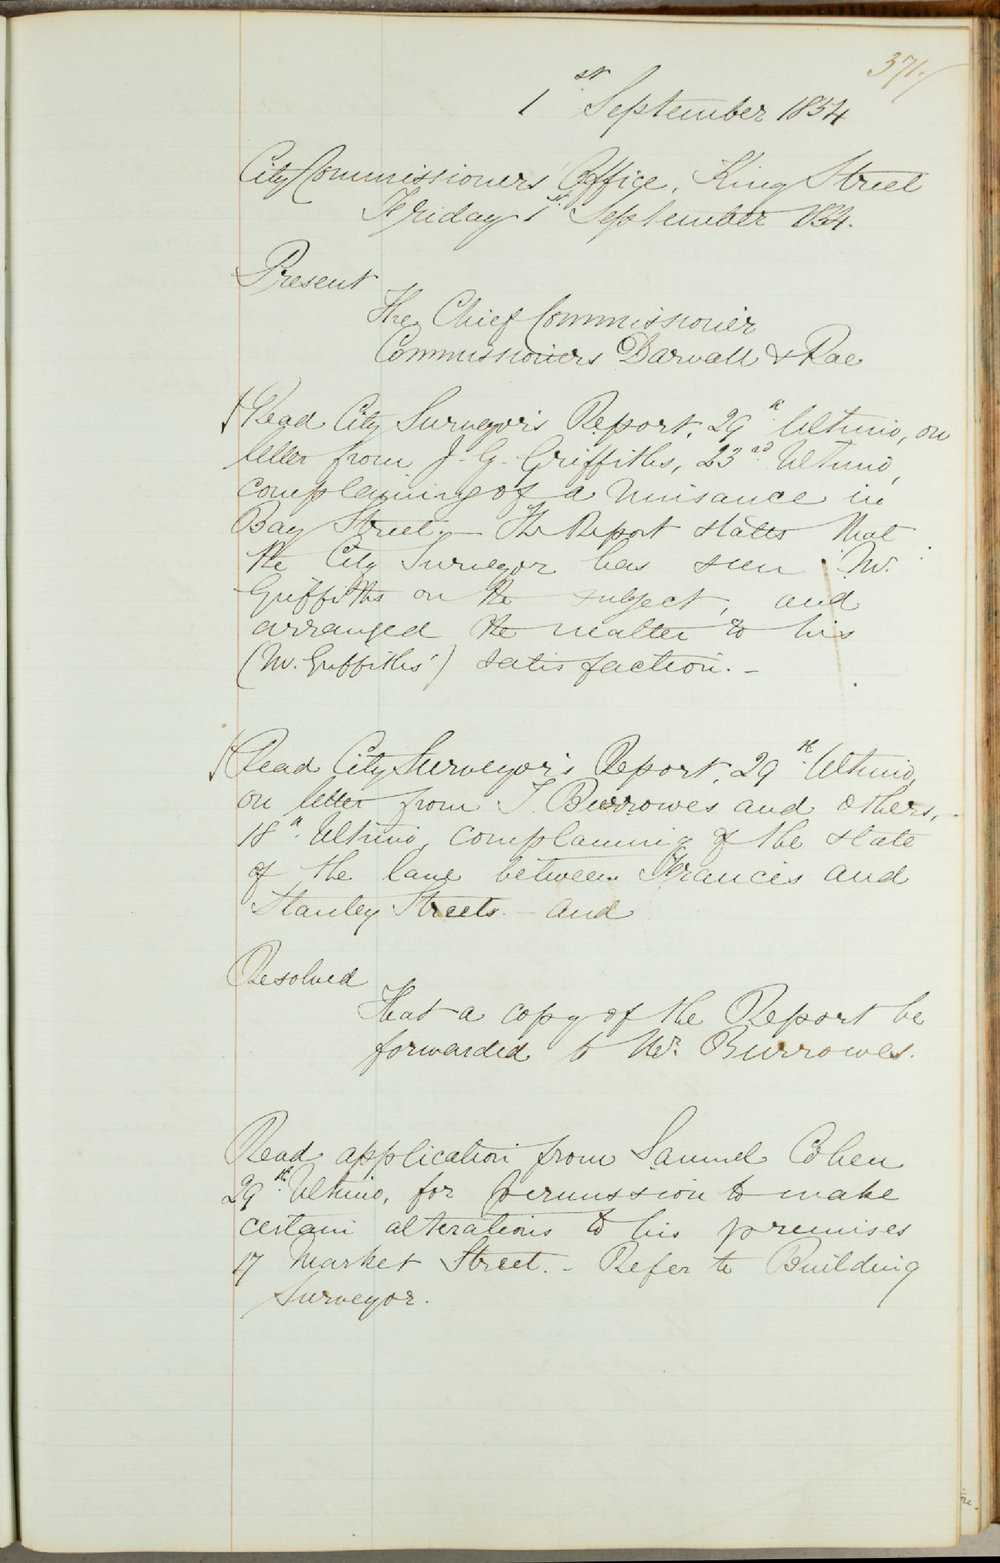 371
1st September 1854
City Commissioners' Office, King Street
Friday 1st September 1854.
Present
The Chief Commissioner
Commissioners Darvall & Rae
Read City Surveyor's Report, 29th Ultimo, on
letter from J. G. Griffiths, 23rd Ultimo,
complaining of a nuisance in
Bay Street. — The Report states that
the City Surveyor has seen Mr.
Griffiths on the subject, and
arranged the matter to his
(Mr. Griffiths') satisfaction. —
Read City Surveyor's Report, 29th Ultimo,
on letter from T. Burrowes and others,
18th Ultimo, complaining of the state
of the lane between Francis and
Stanley Streets. — and
Resolved
That a copy of the Report be
forwarded to Mr. Burrowes.
Read application from Samuel Cohen
29th Ultimo, for permission to make
certain alterations to his premises
17 Market Street. — Refer to Building
Surveyor.